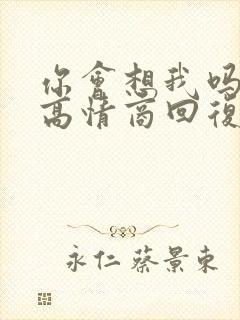 你會想我吗
高情商回復
永仁 蔡景東